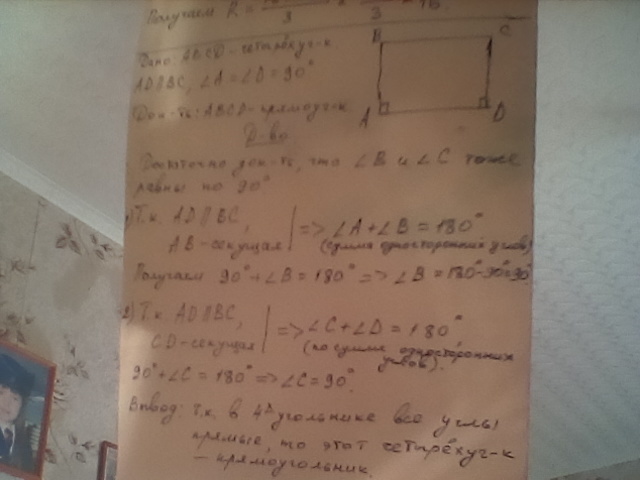 Получаем R =
B C
Дано: ABCD - четырёхуг-к.
AD∥BC, ∠A=∠D=90°
Док-ть: ABCD-прямоуг-к
A D
Д-во
Достаточно док-ть, что ∠B и ∠C тоже
равны по 90°
1) Т.к. AD∥BC,
AB-секущая | => ∠A+∠B=180°
(сумма односторонних углов)
Получаем 90°+∠B=180° => ∠B=180°-90°=90°
2) Т.к. AD∥BC,
CD-секущая | => ∠C+∠D=180°
(по сумме односторонних
углов).
90°+∠C=180° => ∠C=90°.
Вывод: т.к. в 4х угольнике все углы
прямые, то этот четырёхуг-к
- прямоугольник.